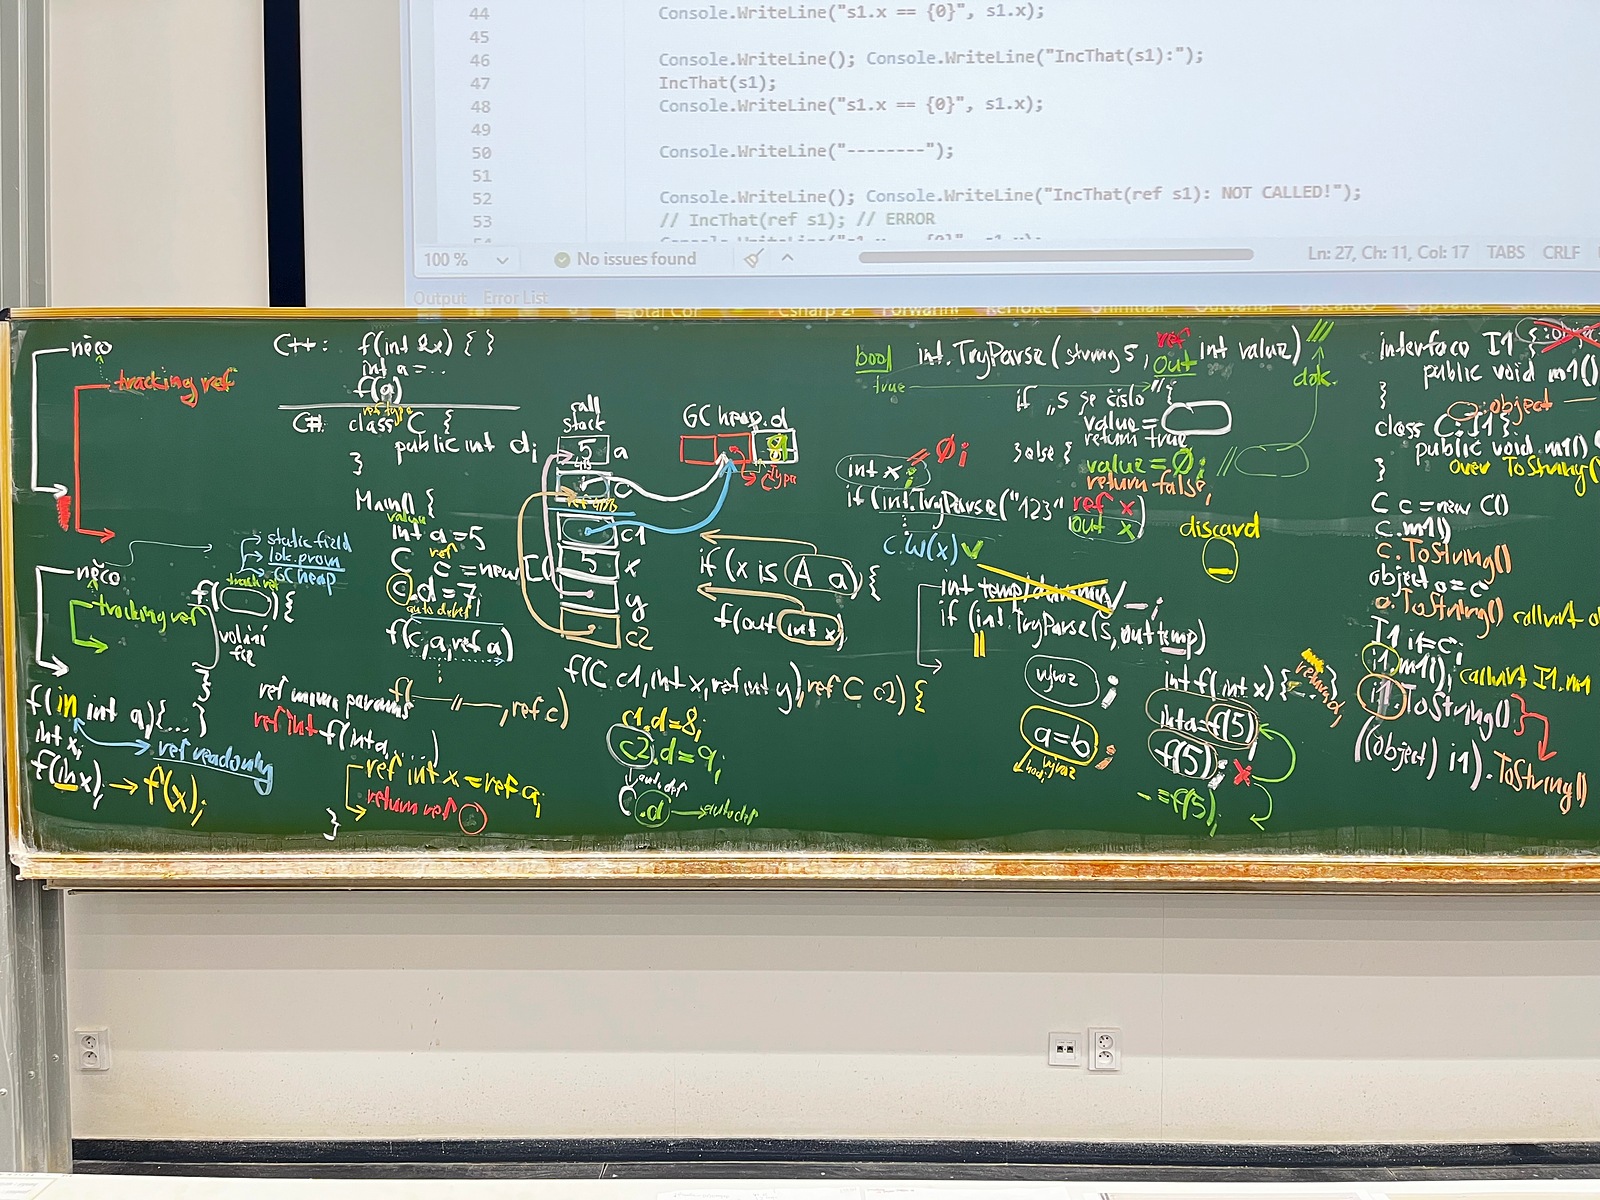 44 Console.WriteLine("s1.x == {0}", s1.x);
45
46 Console.WriteLine(); Console.WriteLine("IncThat(s1):");
47 IncThat(s1);
48 Console.WriteLine("s1.x == {0}", s1.x);
49
50 Console.WriteLine("--------");
51
52 Console.WriteLine(); Console.WriteLine("IncThat(ref s1): NOT CALLED!");
53 // IncThat(ref s1); // ERROR
100 % No issues found Ln: 27, Ch: 11, Col: 17 TABS CRLF
Output Error List
něco
tracking ref
něco
tracking ref
static field
lok. prom
GC heap
track ref
f( ) {
volání
fce
f(in int a){...}
int x;
f(in x); → f(x);
ref readonly
C++: f(int &x) { }
int a = ..
f(a)
ref type
C#: class C {
public int d;
}
Main() {
value
int a = 5
ref
C c = new C()
c.d = 7;
auto deref
f(c, a, ref a)
call
stack
5 a
c
c1
5 x
y
c2
GC heap d
Type
if (x is A a) {
f(out int x)
f(C c1, int x, ref int y, ref C c2) {
c1.d = 8;
c2.d = 9;
.d → autoder
f( —〃—, ref c)
ref int f(int a, )
ref int x = ref a;
return ref
}
bool int.TryParse(string s, ref out int value)
true
dok.
if „s je číslo" {
value =
return true
} else {
value = 0;
return false;
int x; = 0;
if (int.TryParse("123" ref x)
out x
C.W(x)
discard
_
int temp/dummy _;
if (int.TryParse(s, out temp)
výraz ;
a=b ;
výraz
int f(int x) {
int a = f(5);
f(5);
_ = f(5);
interface I1 {
public void m1()
}
: object
class C : I1 {
public void m1()
over ToString(
}
C c = new C()
c.m1()
c.ToString()
object o = c
o.ToString() callvirt
I1 i1 = c;
i1.m1(); callvirt I1.m1
i1.ToString()
((object) i1).ToString()